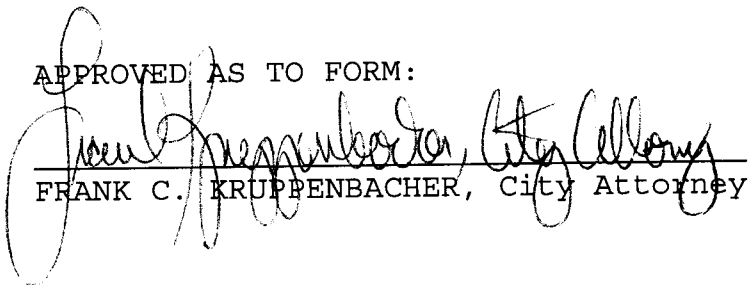 APPROVED AS TO FORM:
Frank Kruppenbacher, City Attorney
FRANK C. KRUPPENBACHER, City Attorney